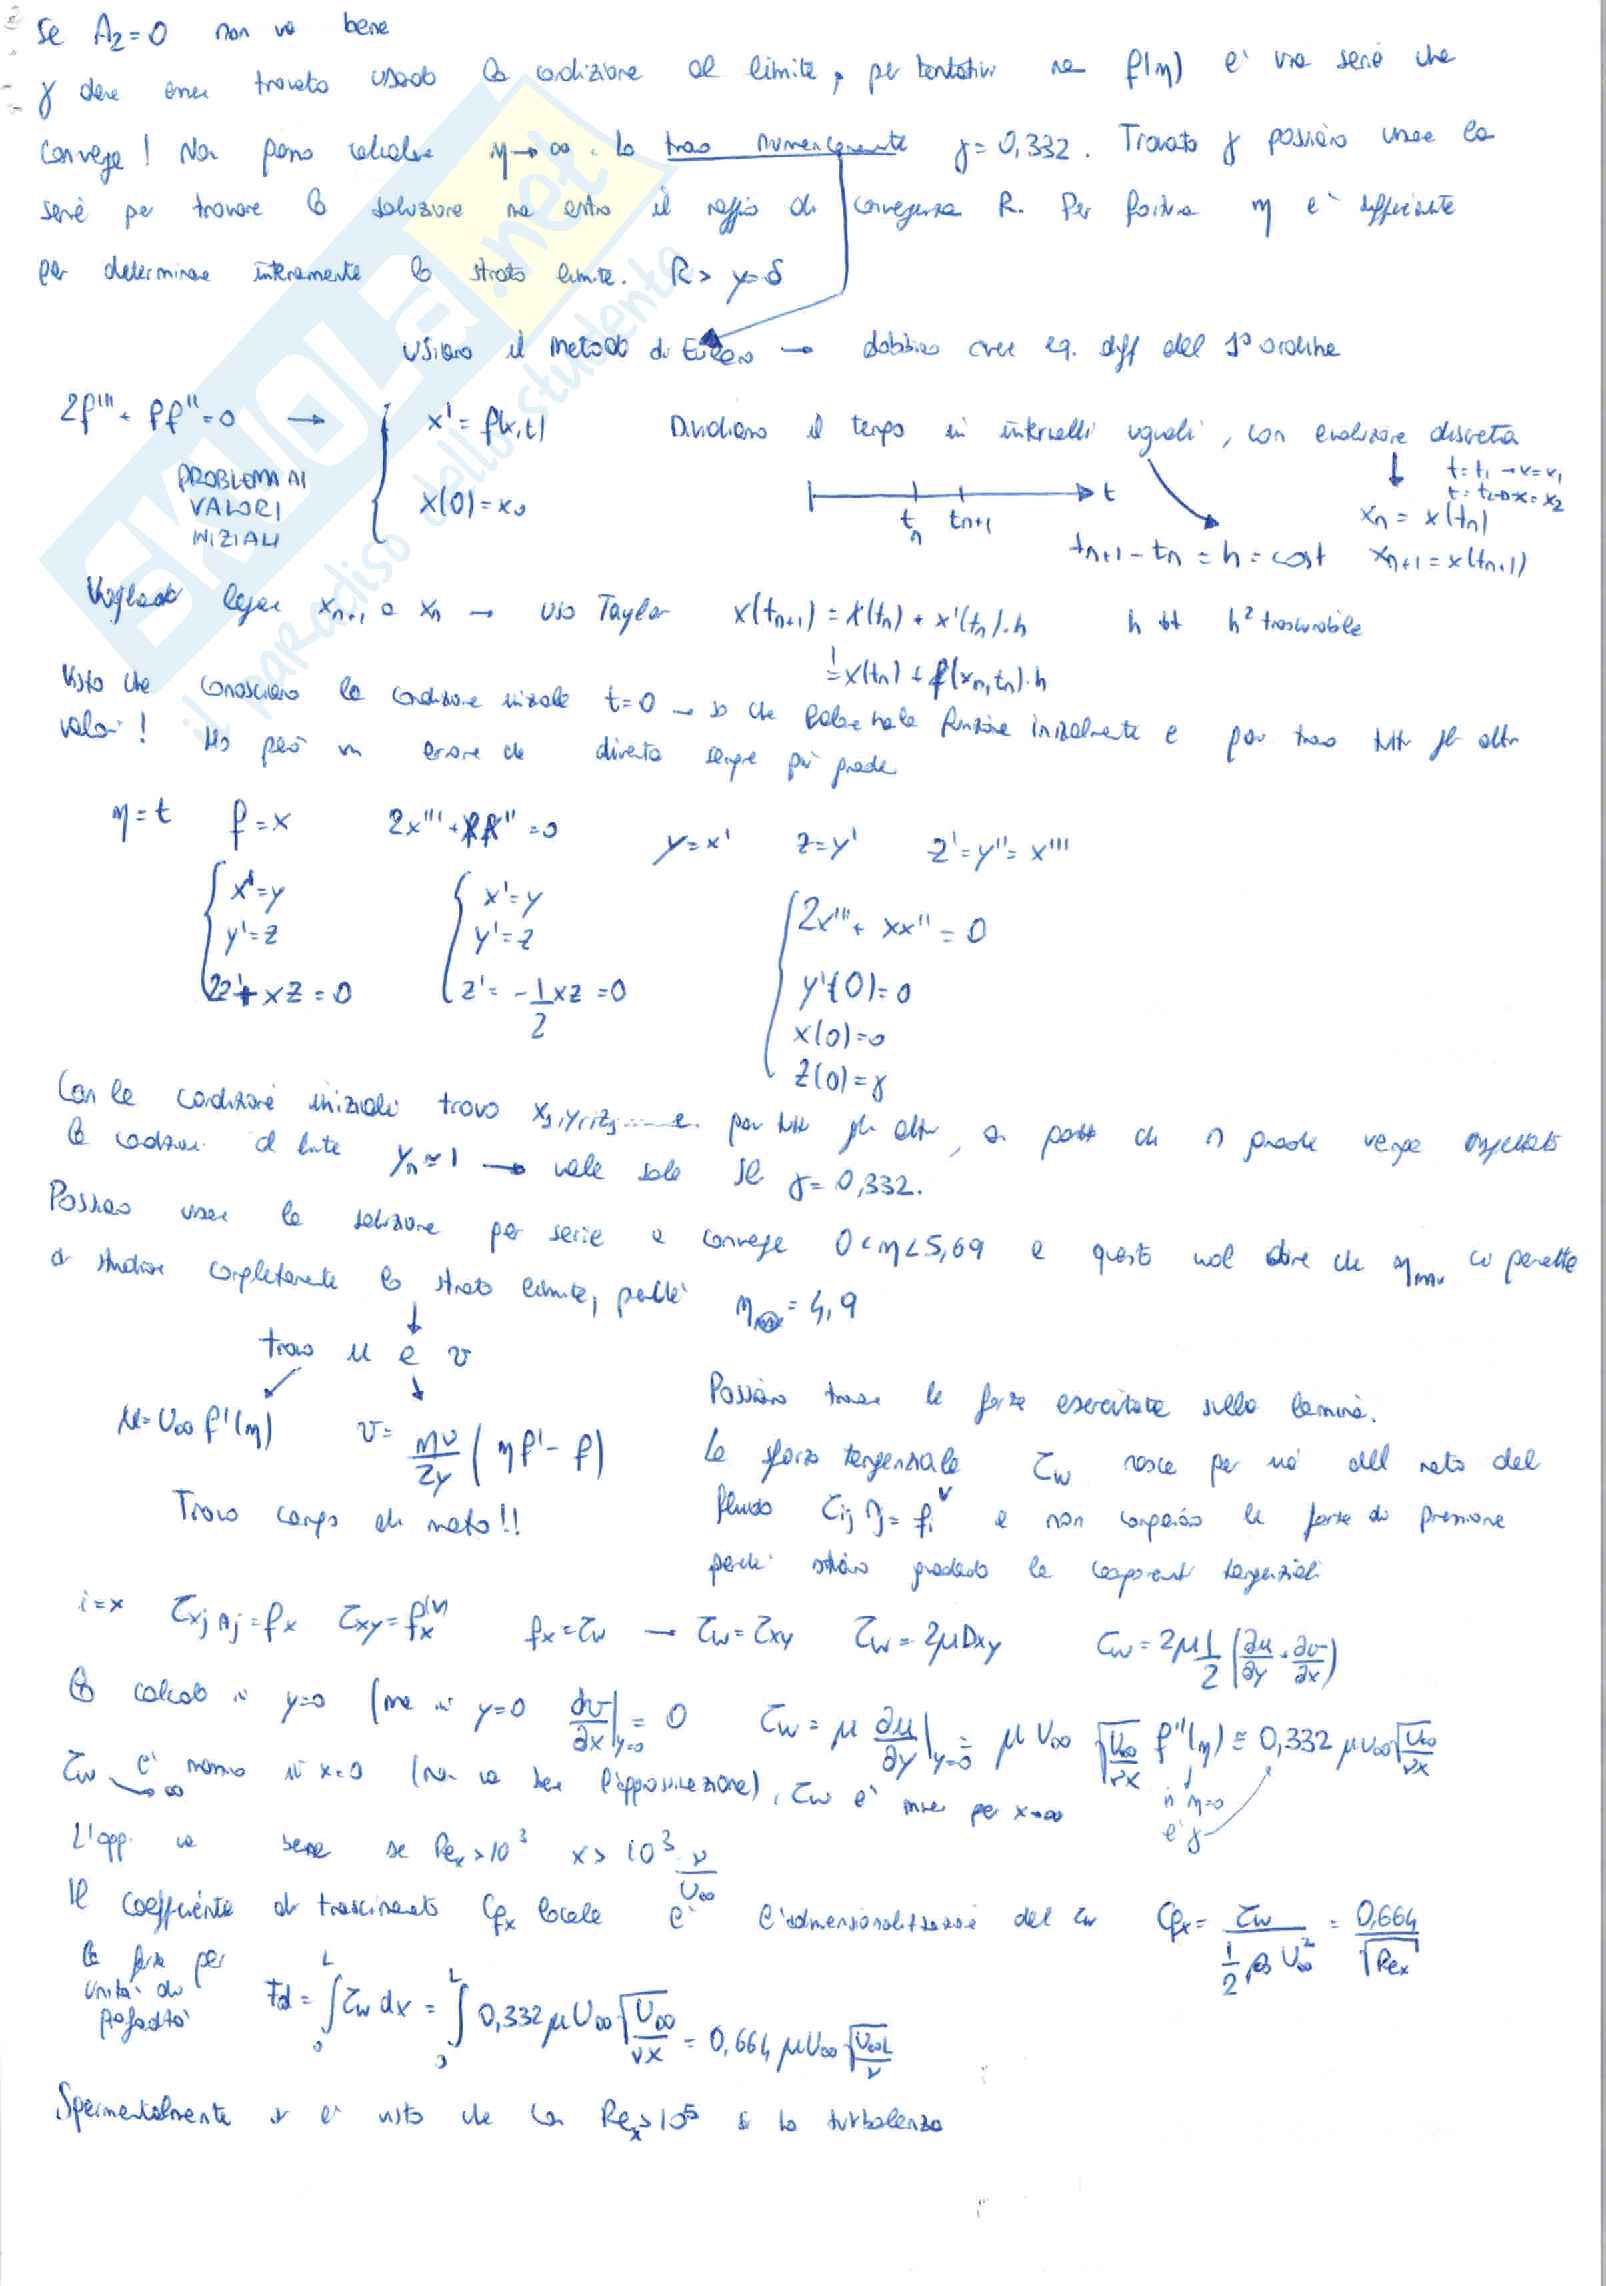 Se A₂=0 non va bene
γ deve esser trovato usando la condizione al limite, per tentativi ma f(η) è una serie che
converge! Non posso calcolare η→∞. Lo trovo numericamente γ=0,332. Trovato γ possiamo usare la
serie per trovare la soluzione ma entro il raggio di convergenza R. Per fortuna η è sufficiente
per determinare interamente lo strato limite. R > y=δ
Usiamo il metodo di Eulero → dobbiamo avere eq. diff del 1° ordine
2f''' + ff'' = 0 → { x' = f(x,t)
x(0) = x₀
PROBLEMA AI
VALORI
INIZIALI
Dividiamo il tempo in intervalli uguali, con evoluzione discreta
t=t₁ → x=x₁
t=t₂ → x=x₂
t
tₙ tₙ₊₁
xₙ = x(tₙ)
tₙ₊₁ - tₙ = h = cost xₙ₊₁ = x(tₙ₊₁)
Vogliamo legare xₙ₊₁ a xₙ → uso Taylor x(tₙ₊₁) = x(tₙ) + x'(tₙ)·h h² trascurabile
= x(tₙ) + f(xₙ,tₙ)·h
Visto che conosciamo la condizione iniziale t=0 → so che valore ha la funzione inizialmente e poi trovo tutti gli altri
valori! Ho però un errore che diventa sempre più grande
η=t f=x 2x''' + xx'' = 0 y=x' z=y' z'=y''=x'''
{ x'=y
y'=z
2z'+xz=0
{ x'=y
y'=z
z'= -1/2 xz =0
{ 2x''' + xx'' = 0
y'(0)=0
x(0)=0
z(0)=γ
Con le condizioni iniziali trovo x₁,y₁,z₁ ... e poi tutti gli altri, a patto che n grande venga rispettata
la condizione al limite yₙ≅1 → vale solo se γ=0,332.
Possiamo usare la soluzione per serie e converge 0<η<5,69 e questo vuol dire che ηmax ci permette
di studiare completamente lo strato limite, perché η = 4,9
trovo u e v
u=U∞ f'(η) v= ην/2y (ηf' - f)
Trovo campo di moto!!
Possiamo trovare le forze esercitate sulla lamina.
Lo sforzo tangenziale τw nasce per via del moto del
fluido τij nj = fiᵛ e non compaiono le forze di pressione
perché stiamo guardando le componenti tangenziali
i=x τxj nj = fx τxy = fx⁽ᵛ⁾ fx = τw → τw = τxy τw = 2μDxy τw = 2μ 1/2 (∂u/∂y + ∂v/∂x)
Lo calcolo in y=0 (ma in y=0 ∂v/∂x|y=0 = 0 τw = μ ∂u/∂y|y=0 = μ U∞ √(U∞/νx) f''(η) ≅ 0,332 μU∞ √(U∞/νx)
in η=0
è γ
τw è massimo in x=0 (non va bene l'approssimazione), τw è min per x→∞
→∞
L'app. va bene se Rex>10³ x> 10³ ν/U∞
Il coefficiente di trascinamento Cfx locale è l'adimensionalizzazione del τw Cfx = τw / (1/2 ρ U∞²) = 0,664/√Rex
La forza per
unità di
profondità
Fd = ∫₀ᴸ τw dx = ∫₀ᴸ 0,332 μU∞ √(U∞/νx) = 0,664 μU∞ √(U∞L/ν)
Sperimentalmente si è visto che con Rex>10⁵ si ha turbolenza
SKUOLa.net
il paradiso dello studente